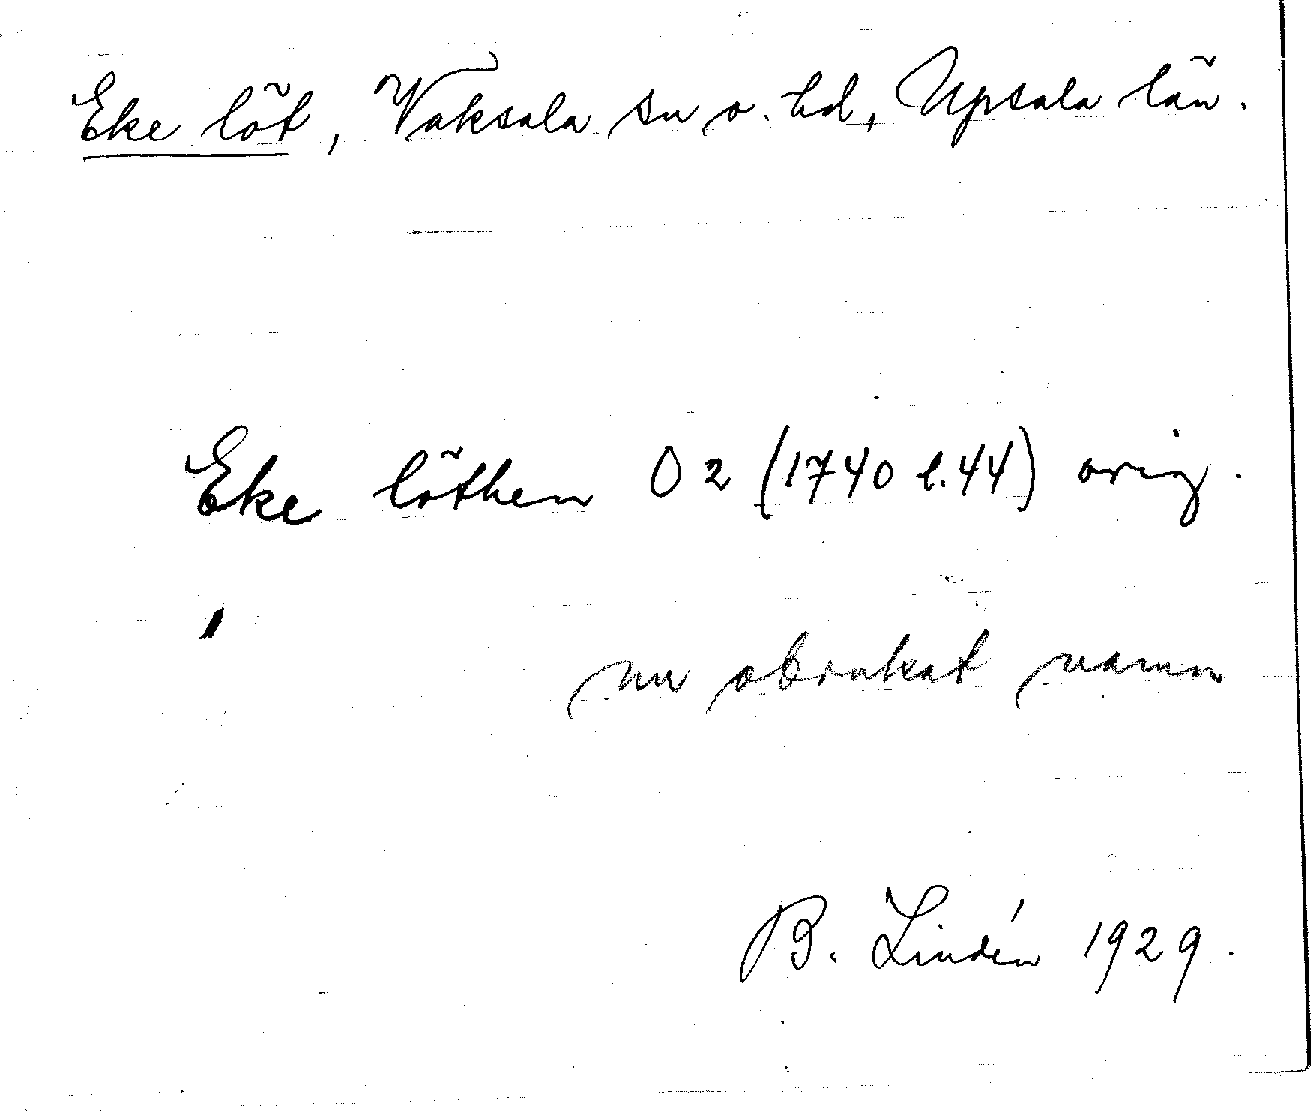 Eke löt, Vaksala sn o. hd, Upsala län.
Eke löthen O2 (1740 l.44) orig.
nu obrukat namn
B. Lindén 1929.